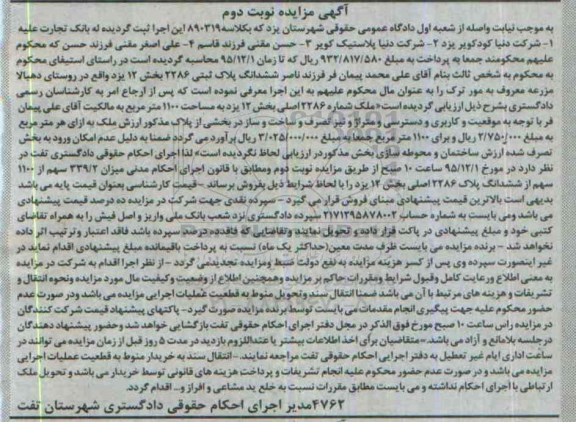 آگهی مزایده نوبت دوم
به موجب نیابت واصله از شعبه اول دادگاه عمومی حقوقی شهرستان یزد که بکلاسه ۸۹۰۳۱۹ این اجرا ثبت گردیده له بانک تجارت علیه
۱- شرکت دنیا کودکویر یزد ۲- شرکت دنیا پلاستیک کویر ۳- حسن مقنی فرزند قاسم ۴- علی اصغر مقنی فرزند حسن که محکوم
علیهم محکومند جمعا به پرداخت به مبلغ ۹۳۲/۸۱۷/۵۸۰ ریال که تا زمان ۹۵/۱۲/۱ محاسبه گردیده است در راستای استیفای محکوم
به محکوم به شخص ثالث بنام آقای علی محمد پیمان فر فرزند ناصر ششدانگ پلاک ثبتی ۲۲۸۶ بخش ۱۲ یزد واقع در روستای دهبالا
مزرعه معروف به مور ترک را به عنوان مال محکوم علیهم به این اجرا معرفی نموده است که پس از ارجاع امر به کارشناسان رسمی
دادگستری بشرح ذیل ارزیابی گردیده است« ملک شماره ۲۲۸۶ اصلی بخش ۱۲ یزد به مساحت ۱۱۰۰ متر مربع به مالکیت آقای علی پیمان
فر با توجه به موقعیت و کاربری و دسترسی و متراژ و نوع تصرف و ساخت و ساز در بخشی از پلاک مذکور ارزش ملک به ازای هر متر مربع
به مبلغ ۲/۷۵۰/۰۰۰ ریال و برای ۱۱۰۰ متر مربع جمعا به مبلغ ۳/۰۲۵/۰۰۰/۰۰۰ ریال برآورد می گردد ضمنا به دلیل عدم امکان ورود به بخش
تصرف شده ارزش ساختمان و محوطه سازی بخش مذکور در ارزیابی لحاظ نگردیده است» لذا اجرای احکام حقوقی دادگستری تفت در
نظر دارد در مورخ ۹۵/۱۲/۱ ساعت ۱۰ صبح از طریق مزایده نوبت دوم ومطابق با قانون اجرای احکام مدنی میزان ۳۳۹/۲ سهم از ۱۱۰۰
سهم از ششدانگ پلاک ۲۲۸۶ اصلی بخش ۱۲ یزد را با لحاظ شرایط ذیل بفروش برساند - قیمت کارشناسی بعنوان قیمت پایه می باشد
بدیهی است بالاترین قیمت پیشنهادی مبنای فروش قرار می گیرد - سپرده نقدی جهت شرکت در مزایده ده درصد قیمت پیشنهادی
می باشد ومی بایست به شماره حساب ۲۱۷۱۲۹۵۸۷۸۰۰۲ سپرده دادگستری نزد شعب بانک ملی واریز و اصل فیش را به همراه تقاضای
کتبی خود و مبلغ پیشنهادی در پاکت قرار داده و تحویل نمایند وتقاضایی که فاقد ده درصد سپرده باشد فاقد اعتبار و ترتیب اثر داده
نخواهد شد - برنده مزایده می بایست ظرف مدت معین(حداکثر یک ماه) نسبت به پرداخت باقیمانده مبلغ پیشنهادی اقدام نماید در
غیر اینصورت سپرده وی پس از کسر هزینه مزایده به نفع دولت ضبط ومزایده تجدیدمی گردد - از نظر اجرا اقدام به شرکت در مزایده
به معنی اطلاع ورعایت کامل وقبول شرایط ومقررات حاکم بر مزایده وهمچنین اطلاع از وضعیت وکیفیت مال مورد مزایده ونحوه انتقال و
تشریفات و هزینه های مرتبط با آن می باشد ضمنا انتقال سند وتحویل منوط به قطعیت عملیات اجرایی مزایده می باشد ودر صورت عدم
حضور محکوم علیه جهت پیگیری انجام مقدمات می بایست توسط برنده مزایده صورت گیرد- پاکتهای پیشنهاد قیمت شرکت کنندگان
در مزایده راس ساعت ۱۰ صبح مورخ فوق الذکر در محل دفتر اجرای احکام حقوقی تفت بازگشایی خواهد شد وحضور پیشنهاد دهندگان
در جلسه بلامانع و آزاد می باشد.-متقاضیان برای اخذ اطلاعات بیشتر یا عنداللزوم بازدید در مدت ۵ روز قبل از زمان مزایده می توانند در
ساعت اداری ایام غیر تعطیل به دفتر اجرایی احکام حقوقی تفت مراجعه نمایند.- انتقال سند به خریدار منوط به قطعیت عملیات اجرایی
مزایده می باشد و در صورت عدم حضور محکوم علیه انجام تشریفات و پرداخت هزینه های قانونی توسط خریدار می باشد و تحویل ملک
ارتباطی با اجرای احکام نداشته و می بایست مطابق مقررات نسبت به خلع ید مشاعی و افراز و.. اقدام گردد.
۴۷۶۲مدیر اجرای احکام حقوقی دادگستری شهرستان تفت